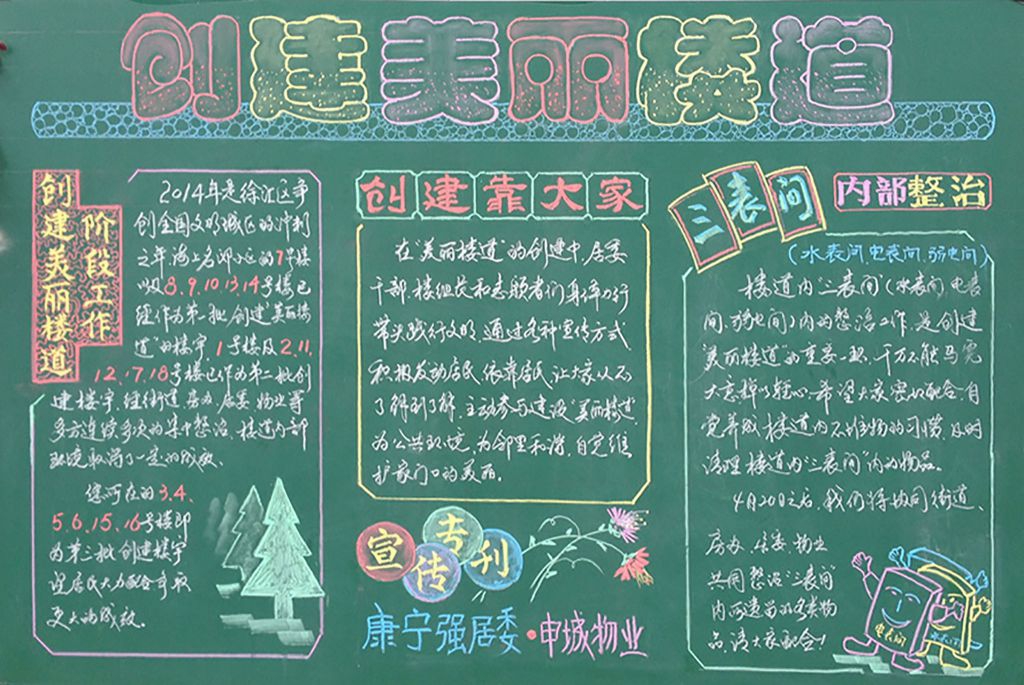 创建美丽楼道
创建美丽楼道
阶段工作
2014年是徐汇区争
创全国文明城区的冲刺
之年海上名邸小区的7号楼
以及8、9、10、13、14号楼已
经作为第一批创建"美丽楼
道"的楼宇。1号楼及2、11、
12、17、18号楼也作为第二批创
建楼宇，经街道、房办、居委、物业等
多方连续多次的集中整治，楼道内部
环境取得了一定的成效。
您所在的3、4、
5、6、15、16号楼即
为第三批创建楼宇
望居民大力配合争取
更大的成效。
创建靠大家
在"美丽楼道"的创建中，居委
干部、楼组长和志愿者们身体力行
带头践行文明，通过各种宣传方式
积极发动居民、依靠居民，让大家从不
了解到了解，主动参与建设"美丽楼道"
为公共环境，为邻里和谐，自觉维
护家门口的美丽。
宣传专刊
康宁强居委·申城物业
三表间
内部整治
（水表间，电表间，弱电间）
楼道内"三表间"（水表间，电表
间，弱电间）内的整治工作，是创建
"美丽楼道"的重要一环，千万不能马虎
大意掉以轻心。希望大家密切配合，自
觉养成楼道内不堆物的习惯，及时
清理楼道内"三表间"内的物品。
4月20日之后，我们将协同街道、
房办、居委、物业
共同整治"三表间"
内所遗留的各类物
品，请大家配合！
电表间
水表间